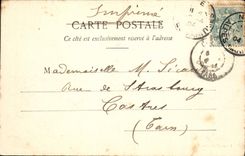 Imprimé
CARTE POSTALE
Ce côté est exclusivement réservé à l'adresse
Mademoiselle M.
Rue de Strasbourg
Castres
(Tarn)